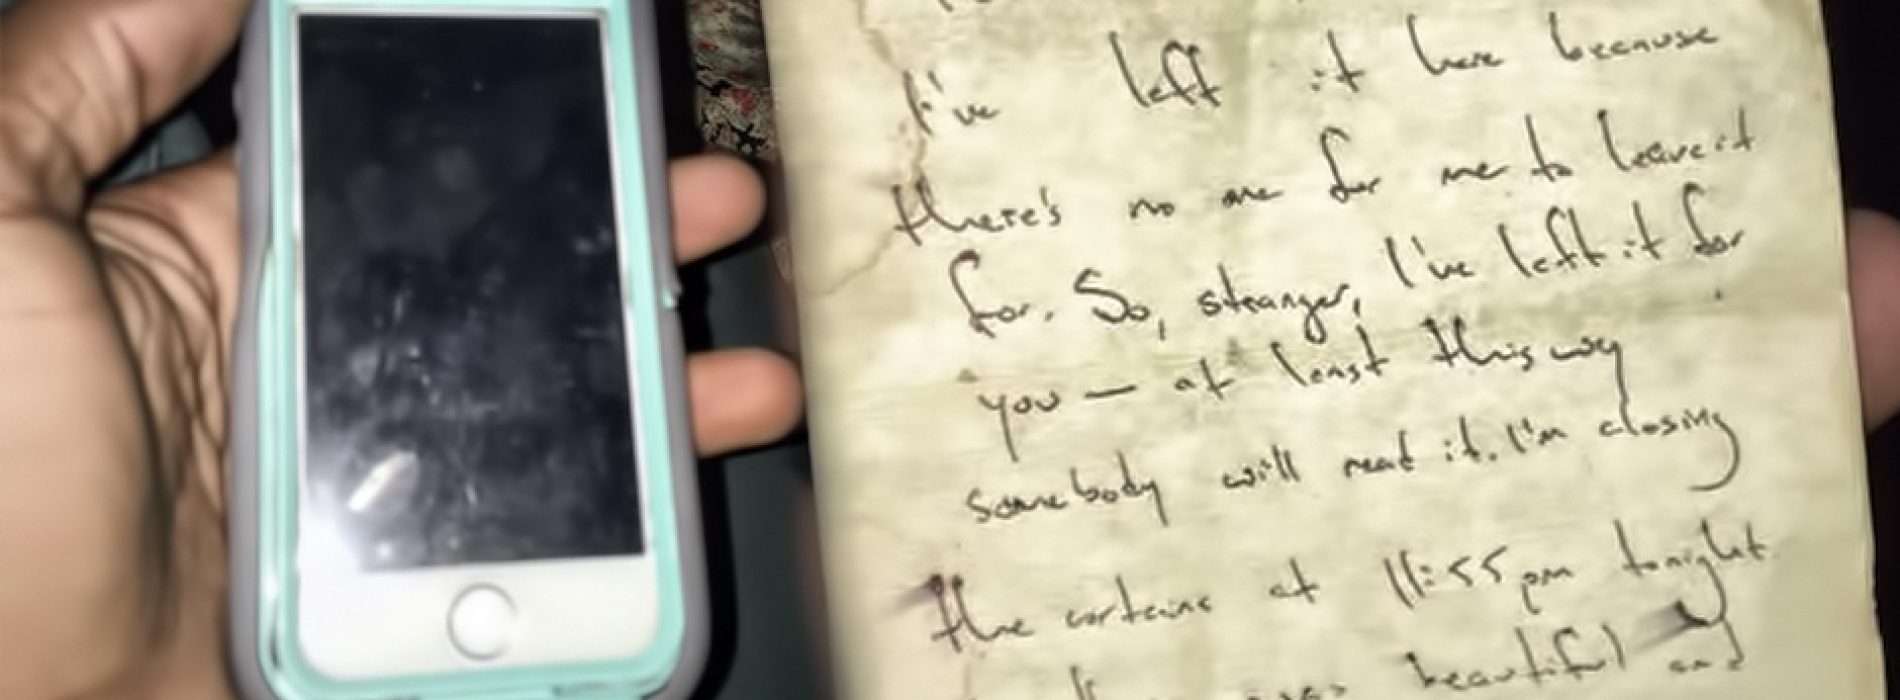 I've left it here because
there's no one for me to leave it
for. So, stranger, I've left it for
you — at least this way
somebody will read it. I'm closing
the curtains at 11:55 pm tonight
beautiful and